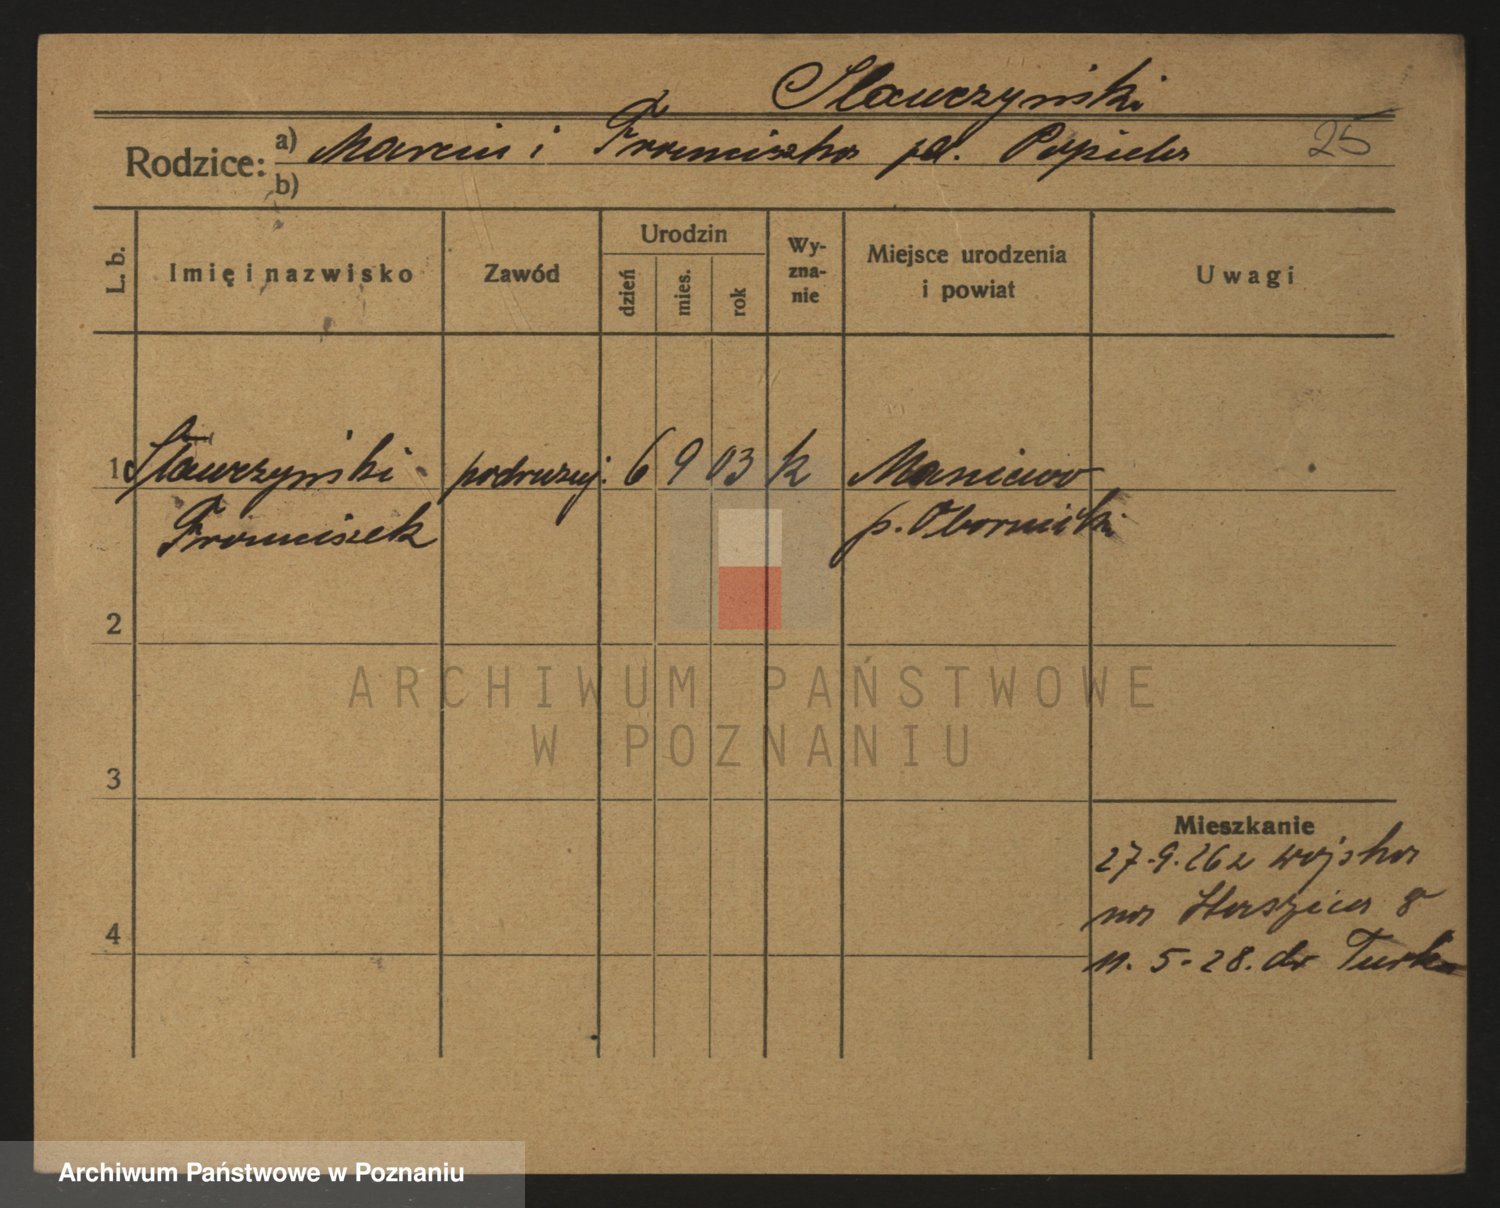 Sławczyński
Rodzice: a) Marcin i Franciszka zd. Popiela 25
b)
L. b. Imię i nazwisko Zawód Urodzin dzień mies. rok Wy-zna-nie Miejsce urodzenia i powiat Uwagi
1 Sławczyński 6 9 03 k Maniewo
Franciszek p. Oborniki
2
3
4
Mieszkanie
27.9.26 z wojska
na 8
11.5.28. do
ARCHIWUM PAŃSTWOWE
W POZNANIU
Archiwum Państwowe w Poznaniu